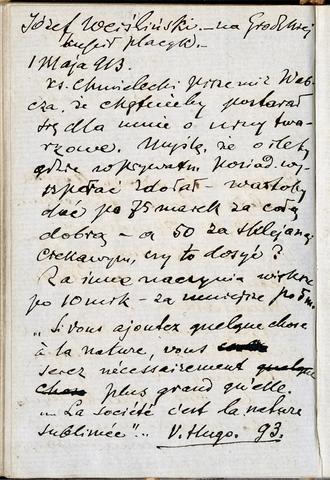 Józef Weisliński – na Grodzkiej
kupił placyk. –
1 Maja 913.
Ks. Chmielecki pisze mi z Wąb-
cza, że chętnieby postarał
się dla mnie o urny twa-
rzowe. Myślę, że o ile by
gdzie w prywatn. posiad. wy-
szperać zdołał – wartoby
dać po 75 marek za całą
dobrą – a 50 za sklejaną
ciekawym, czy to dosyć?
Za inne naczynia większe
po 10 mrk – za mniejsze po 5 m.
„Si vous ajoutez quelque chose
à la nature, vous
serez nécessairement quelque
chose plus grand qu'elle.
„– La société c'est la nature
sublimée"... V. Hugo. 93.